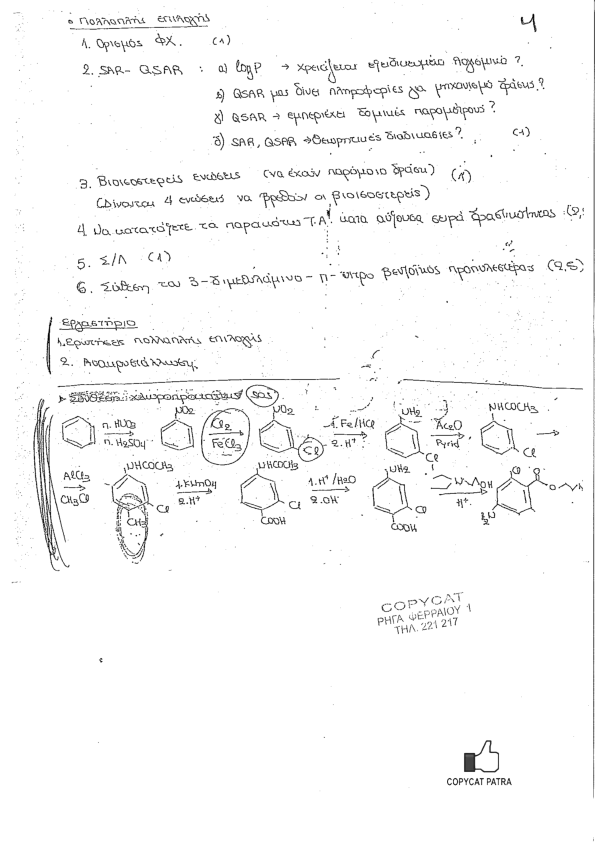 • Πολλαπλής επιλογής
4
1. Ορισμός ΦΧ. (1)
2. SAR- QSAR : α) logP → χρειάζεται εξειδικευμένο λογισμικό ?
β) QSAR μας δίνει πληροφορίες για μηχανισμό δράσης?
γ) QSAR → εμπεριέχει δομικές παραμέτρους?
δ) SAR, QSAR → θεωρητικές διαδικασίες? (1)
3. Βιοισοστερείς ενώσεις (να έχουν παρόμοια δράση) (1)
(Δίνονται 4 ενώσεις να βρεθούν οι βιοισοστερείς)
4. Να κατατάξετε τα παρακάτω Τ.Α κατά αύξουσα σειρά δραστικότητας
5. Σ/Λ (1)
6. Σύνθεση του 3-διμεθυλάμινο- π- νιτρο βενζοϊκός προπυλεστέρας (2,5)
Εργαστήριο
1. Ερωτήσεις πολλαπλής επιλογής
2. Ανακρυστάλλωση
SOS
π. HNO3
π. H2SO4
NO2
Cl2
FeCl3
NO2
Cl
1. Fe/HCl
2. H+
NH2
Cl
Ac2O
Pyrid
NHCOCH3
Cl
AlCl3
CH3Cl
NHCOCH3
Cl
CH3
1. KMnO4
2. H+
NHCOCH3
Cl
COOH
1. H+ /H2O
2. OH-
NH2
Cl
COOH
OH
H+
Cl
O
O
COPYCAT
ΡΗΓΑ ΦΕΡΡΑΙΟΥ 1
ΤΗΛ. 221 217
COPYCAT PATRA